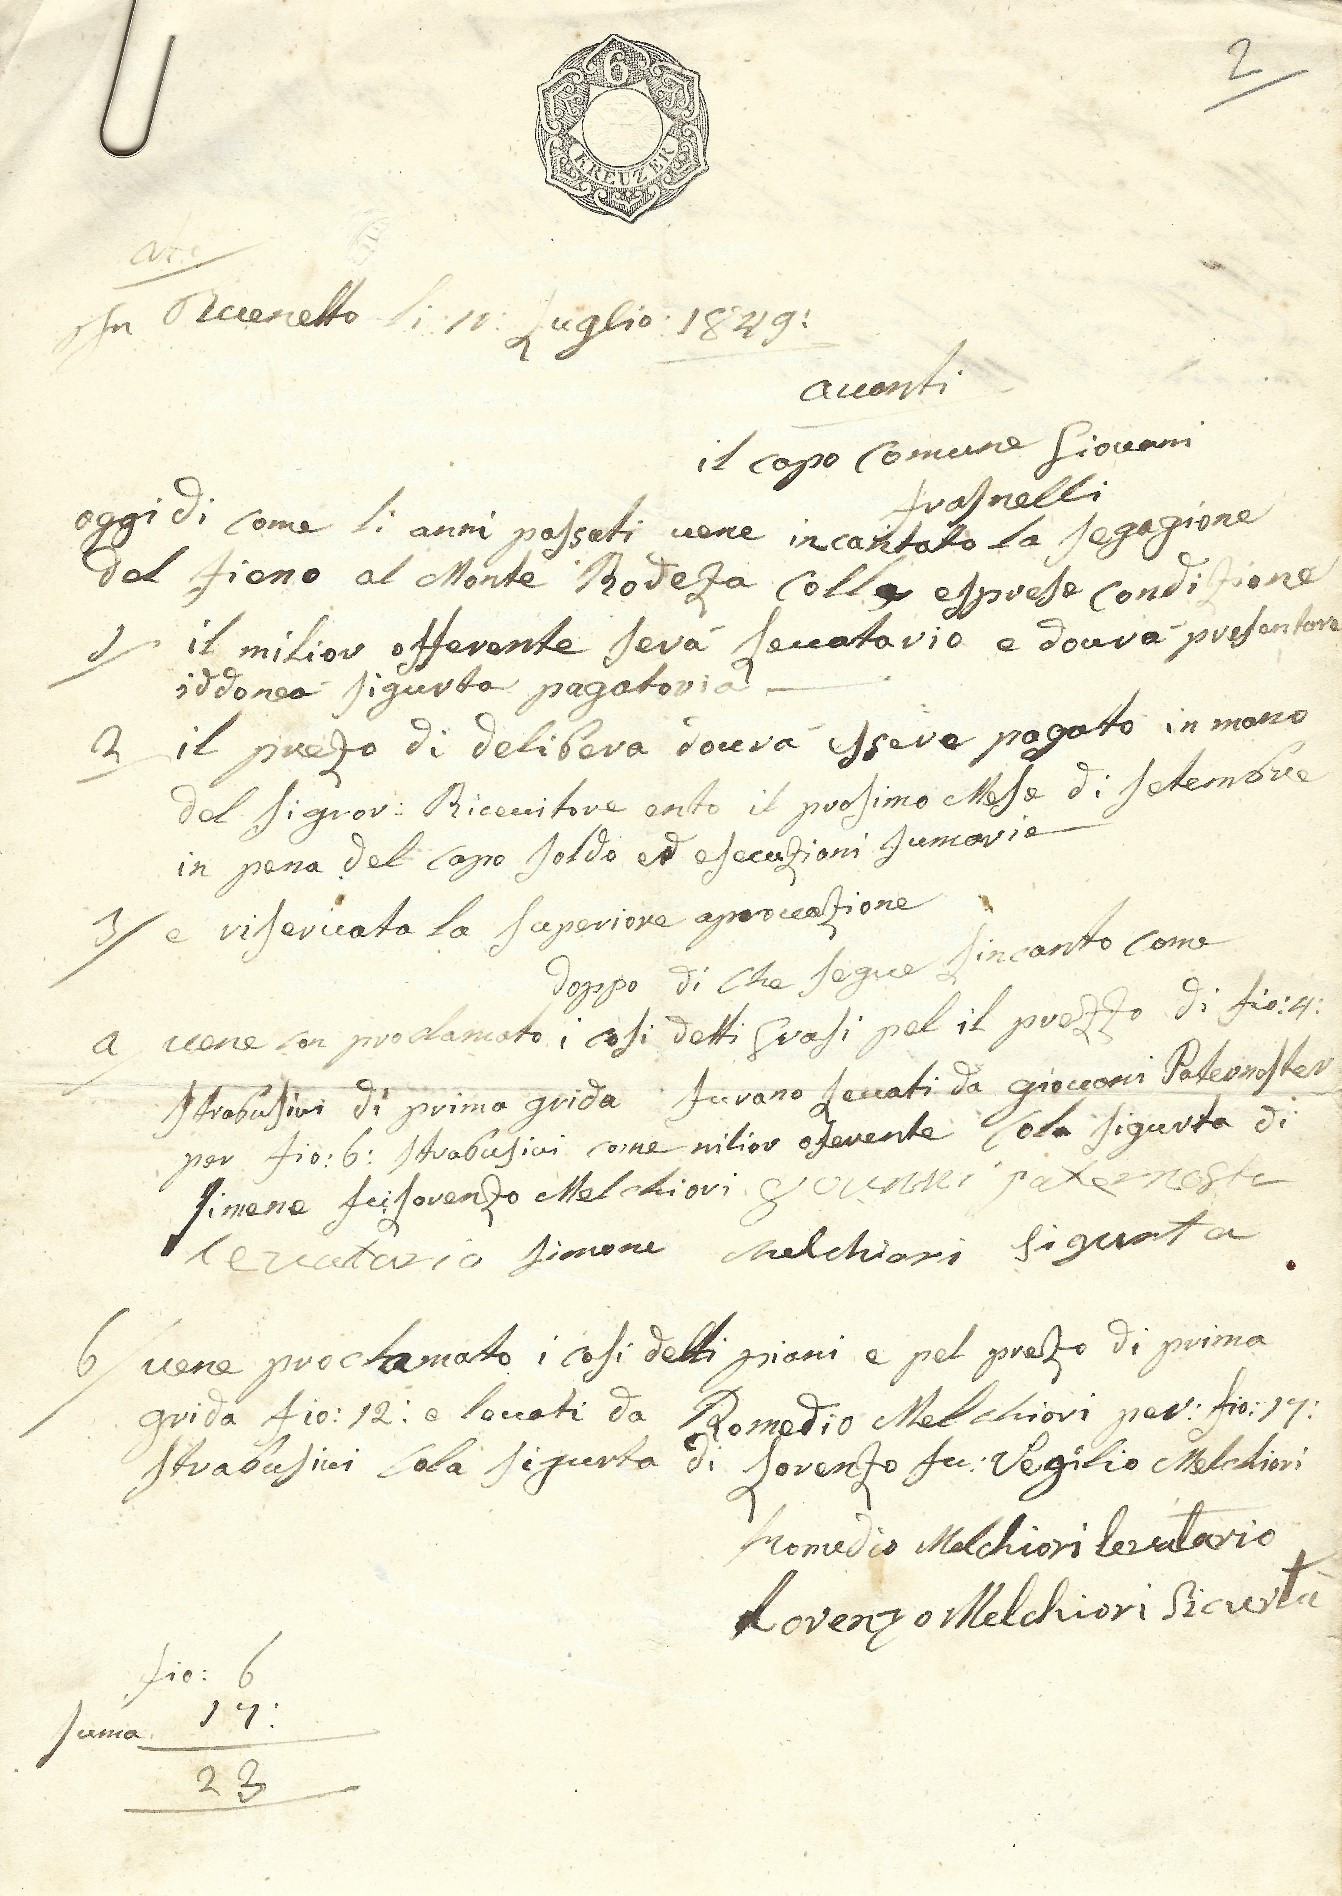 2
6
KREUZER
In Reuenetto li 11: Luglio: 1849:
auanti
il capo Comune Giouani
frasnelli
oggi di come li anni passati uene incantato la segagione
del fieno al Monte Rodeza colle esprese condizione
1 il milior offerente serà leuatario e dourà presentare
iddonea sigurta pagatoria
2 il prezo di delibera dourà essere pagato in mano
del signor: Riceuitore ento il prosimo Mese di setembre
in pena del capo soldo ed esecuzioni sumarie
3/ e riseruata la superiore aprouazione
doppo di che segue lincanto come
a uene con proclamato i cosi detti Grasi pel il prezzo di fio: 4:
Strabusiui di prima grida furano leuati da giouani Paternoster
per fio: 6: Strabusiui come milior oferente cola sigurta di
Simene fu: Lorenzo Melchiori giouanni paternoster
leuatario Simone Melchiori Sigurta
b/ uene proclamato i cosi detti piani e pel prezo di prima
grida fio: 12: e leuati da Romedio Melchiori per: fio: 17:
Strabusiui cola sigurta di Lorenzo fu: Vegilio Melchiori
Romedio Melchiori leuatario
Lorenzo Melchiori Sicurtà
fio: 6
suma 17:
23